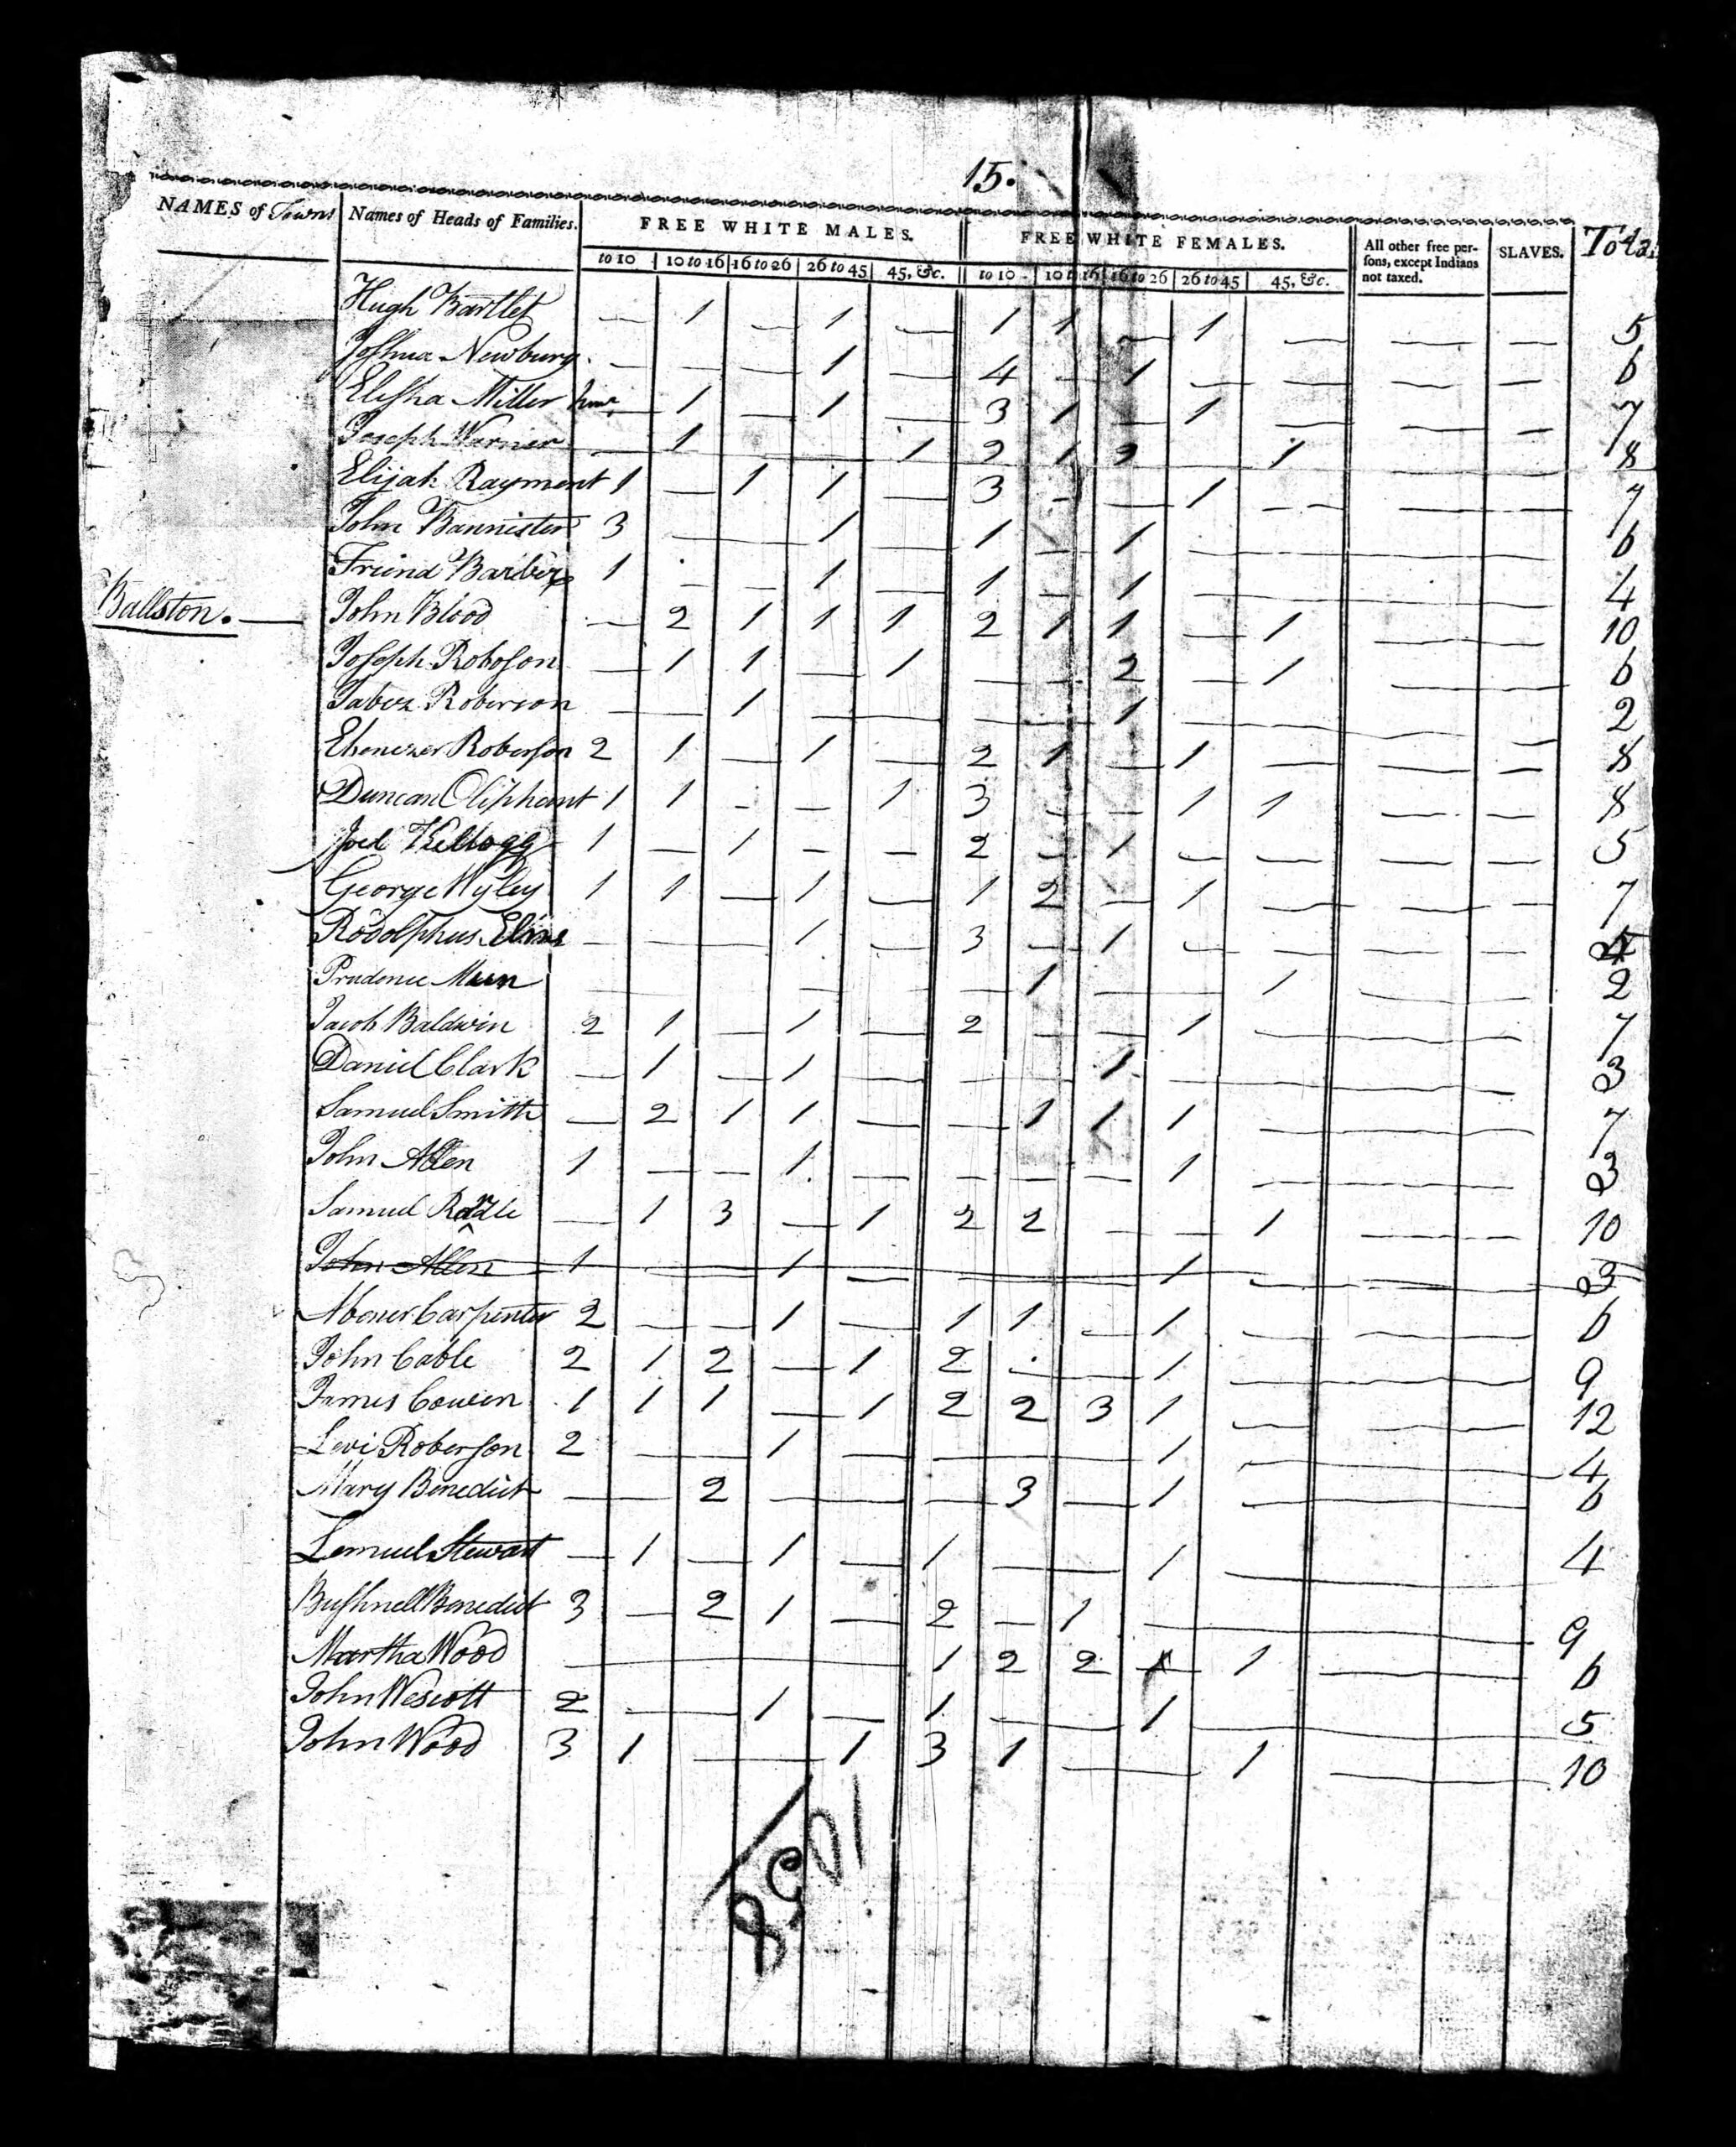 15.
NAMES of Towns | Names of Heads of Families. | FREE WHITE MALES. | FREE WHITE FEMALES. | All other free persons, except Indians not taxed. | SLAVES. | Total
to 10 | 10 to 16 | 16 to 26 | 26 to 45 | 45, &c. | to 10 | 10 to 16 | 16 to 26 | 26 to 45 | 45, &c.
Hugh Bartlet — 1 — 1 — 1 1 — 1 — — — 5
Joshua Newbury — — — 1 — 4 — 1 — — — — 6
Elisha Miller — 1 — 1 — 3 1 — 1 — — — 7
Joseph Warner — 1 — — 1 2 1 2 — 1 — — 8
Elijah Rayment 1 — 1 1 — 3 — — 1 — — — 7
John Bannister 3 — — 1 — 1 — 1 — — — — 6
Friend Barber 1 — — 1 — 1 — 1 — — — — 4
Ballston. — John Blood — 2 1 1 1 2 1 1 — 1 — — 10
Joseph Roboson — 1 1 — 1 — — 2 — 1 — — 6
Jabez Roberson — — 1 — — — — 1 — — — — 2
Ebenezer Roberson 2 1 — 1 — 2 1 — 1 — — — 8
Duncan Oliphant 1 1 — — 1 3 — — 1 1 — — 8
Joel Kellogg 1 — 1 — — 2 — 1 — — — — 5
George Wyley 1 1 — 1 — 1 2 — 1 — — — 7
Rodolphus — — — 1 — 3 — 1 — — — — 5
Prudence — — — — — — 1 — — 1 — — 2
Jacob Baldwin 2 1 — 1 — 2 — — 1 — — — 7
Daniel Clark — 1 — 1 — — — 1 — — — — 3
Samuel Smith — 2 1 1 — — 1 1 1 — — — 7
John Allen 1 — — 1 — — — — 1 — — — 3
Samuel — 1 3 — 1 2 2 — — 1 10
John Allen 1 — — 1 — — — — 1 — — — 3
Abner Carpenter 2 — — 1 — 1 1 — 1 — — — 6
John Cable 2 1 2 — 1 2 — — 1 — — — 9
James Cowen 1 1 1 — 1 2 2 3 1 — — — 12
Levi Roberson 2 — — 1 — — — — 1 — — — 4
Mary Benedict — — 2 — — — 3 — 1 — — — 6
Lemuel Stewart — 1 — 1 — 1 — — 1 — — — 4
Bushnell Benedict 3 — 2 1 — 2 — 1 — — — — 9
Martha Wood — — — — — 1 2 2 — 1 — — 6
John Wescott 2 — — 1 — 1 — — 1 — — — 5
John Wood 3 1 — — 1 3 1 — — 1 — — 10